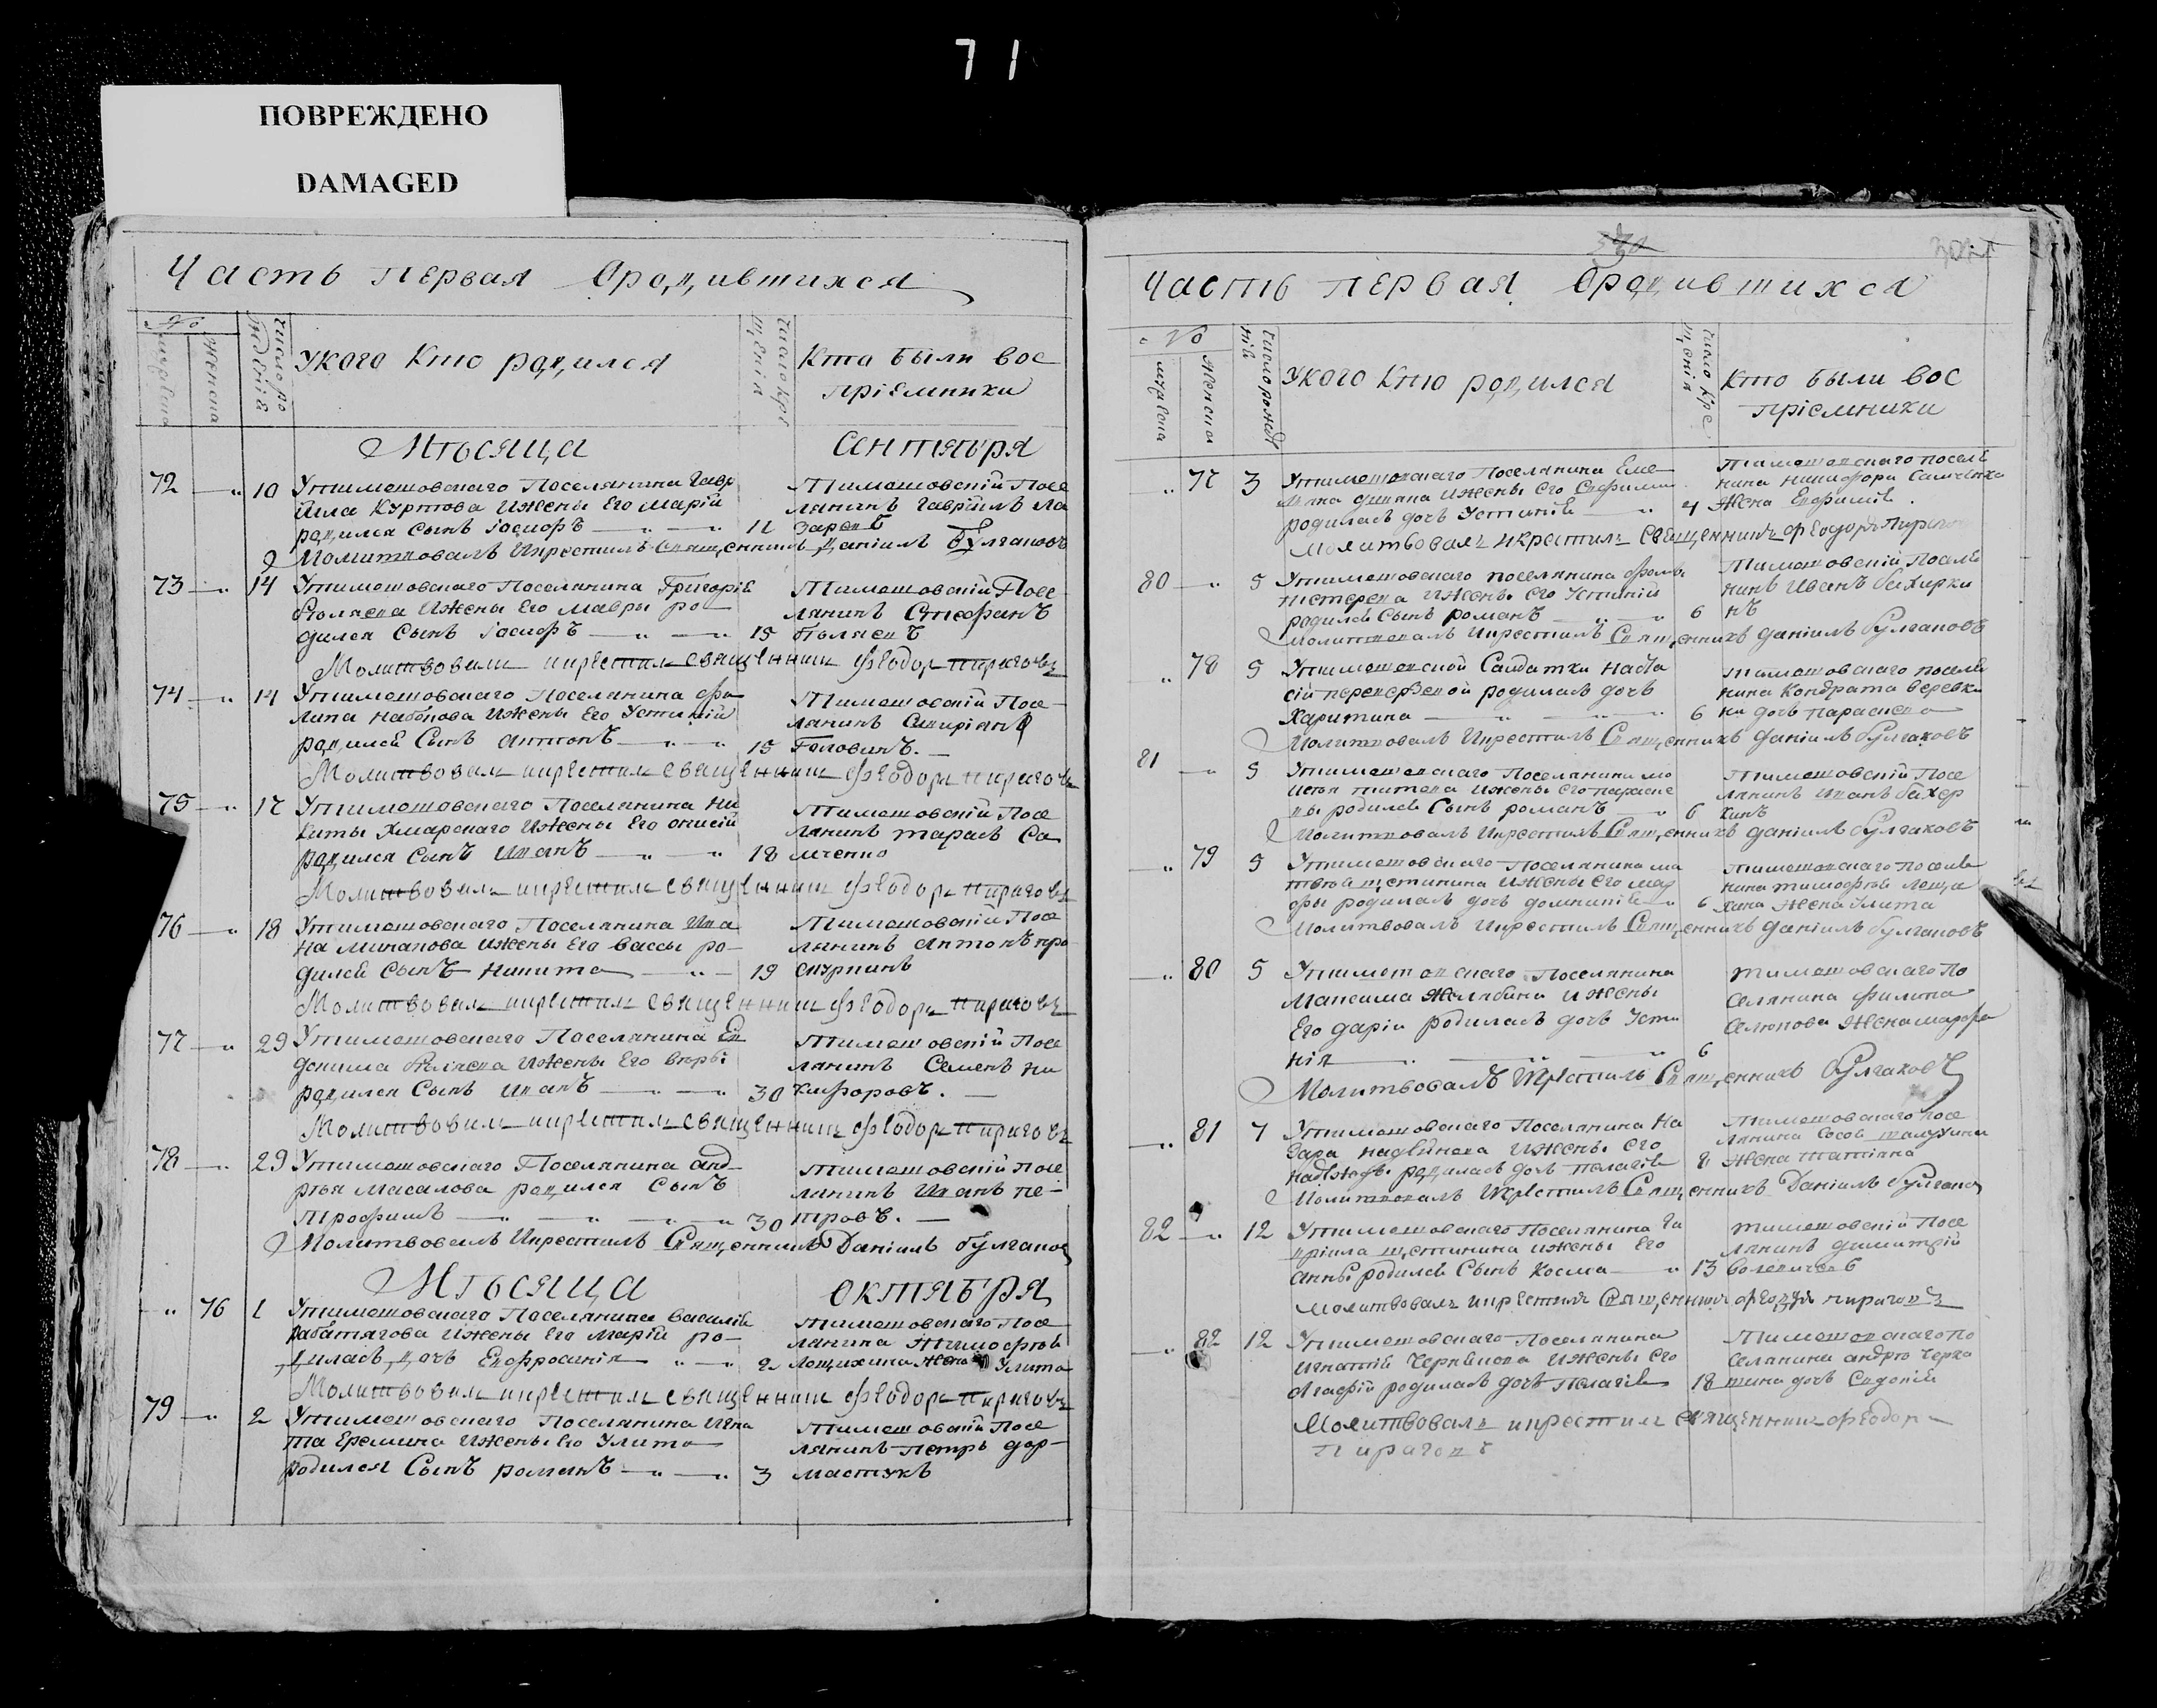 71
ПОВРЕЖДЕНО
DAMAGED
Часть первая Ородившихся
№
Женска
Укого Кто родился
Кто были вос
пріемники
Мѣсяца Сентября
72 10 Утимошовскаго Поселянина Гавр
іила Куртова Ижены Его Маріи
родился сынъ Іосифъ 11
Тимошовскій Посе
лянинъ Гавріилъ Ла
заревъ
Молитвовалъ Икрестилъ Священникъ Даніилъ Булгаковъ
73 14 Утимошовскаго Поселянина Григорія
Ижены Его Мавры ро
дился Сынъ Іосифъ 15
Тимошовскій Посе
лянинъ Стефанъ
Полясъ
Молитвовалъ икрестилъ священникъ Феодоръ Пироговъ
74 14 Утимошовскаго Поселянина Фи
липа Набокова Ижены Его Устиніи
родился Сынъ Антонъ 15
Тимошовскій Посе
лянинъ Спиріянъ
Головинъ.
Молитвовалъ икрестилъ священникъ Феодоръ Пироговъ
75 17 Утимошовскаго Поселянина Ни
киты Хмарскаго Ижены Его Онисіи
родился Сынъ Иванъ 18
Тимошовскій Посе
лянинъ Тарасъ Са
мченко
Молитвовалъ икрестилъ священникъ Феодоръ Пироговъ
76 18 Утимошовскаго Поселянина Ива
на Липатова Ижены Его Вассы ро
дился Сынъ Никита 19
Тимошовскій Посе
лянинъ Антонъ про
скурнинъ
Молитвовалъ икрестилъ священникъ Феодоръ Пироговъ
77 29 Утимошовскаго Поселянина Ев
докима Ижены Его Вѣры
родился Сынъ Иванъ 30
Тимошовскій Посе
лянинъ Семенъ Ни
кифоровъ.
Молитвовалъ икрестилъ священникъ Феодоръ Пироговъ
78 29 Утимошовскаго Поселянина Анд
рѣя Масалова родился Сынъ
Трофимъ 30
Тимошовскій посе
лянинъ Иванъ пе
тровъ.
Молитвовалъ Икрестилъ Священникъ Даніилъ Булгаковъ
Мѣсяца Октября
76 1 Утимошовскаго Поселянина Василія
Рабатягова Ижены Его Маріи ро
дилась дочь Евфросинія 2
Тимошовскаго Посе
лянина Тимофѣя
Лещихина Жена Улита
Молитвовалъ икрестилъ священникъ Феодоръ Пироговъ
79 2 Утимошовскаго Поселянина Игна
та Еремина Ижены Его Улиты
родился Сынъ романъ 3
Тимошовскій Посе
лянинъ Петръ дор
мастукъ
Часть первая Ородившихся
№
Укого Кто родился
Кто были вос
пріемники
77 3 Утимошовскаго Поселянина Еме
Ижены Его Евфиміи
родилась дочь Устинія 4
Тимошовскаго поселя
нина Никифора Самченка
Жена Евфимія.
Молитвовалъ икрестилъ Священникъ Феодоръ Пирогов
80 5 Утимошовскаго поселянина Фомы
нестерева Ижены Его Устиніи
родился Сынъ романъ 6
Тимошовскій Поселя
нинъ Иванъ бахирки
нъ
Молитвовалъ Икрестилъ Священникъ Даніилъ Булгаковъ
78 5 Утимошовской Салдатки Наста
сіи переверзевой родилась дочь
Харитина 6
Тимошовскаго поселя
нина Кондрата веревки
на дочь параскева
Молитвовалъ Икрестилъ Священникъ Даніилъ Булгаковъ
81 5 Утимошовскаго Поселянина мо
исея титова Ижены Его параске
вы родился Сынъ романъ 6
Тимошовскій Посе
лянинъ Иванъ бахер
кинъ
Молитвовалъ Икрестилъ Священникъ Даніилъ Булгаковъ
79 5 Утимошовскаго Поселянина ма
твѣя щетинина Ижены Его мар
фы родилась дочь домникія 6
Тимошовскаго Поселя
нина тимофѣя лещи
хина Жена Улита
Молитвовалъ Икрестилъ Священникъ Даніилъ Булгаковъ
80 5 Утимошовскаго Поселянина
Максима Желябина Ижены
Его Даріи родилась дочь Усти
нія 6
Тимошовскаго По
селянина Филипа
Селюкова Жена марфа
Молитвовалъ Икрестилъ Священникъ Булгаковъ
81 7 Утимошовскаго Поселянина На
зара Ижены Его
Надежды родилась дочь Пелагія 8
Тимошовскаго Посе
лянина
Жена Татіяна
Молитвовалъ Икрестилъ Священникъ Даніилъ Булгаков
82 12 Утимошовскаго Поселянина Га
вріила щетинина Ижены Его
Анны родился Сынъ Косма 13
Тимошовскій Посе
лянинъ димитрій
Молитвовалъ икрестилъ Священникъ Феодоръ Пироговъ
82 12 Утимошовскаго Поселянина
Игнатія Ижены Его
Агафіи родилась дочь Пелагія 18
Тимошовскаго По
селянина андрѣя черка
шина дочь Евдокія
Молитвовалъ икрестилъ священникъ Феодоръ
Пироговъ